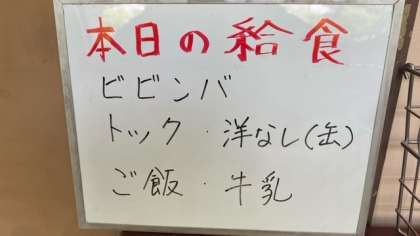 本日の給食
ビビンバ
トック・洋なし(缶)
ご飯・牛乳